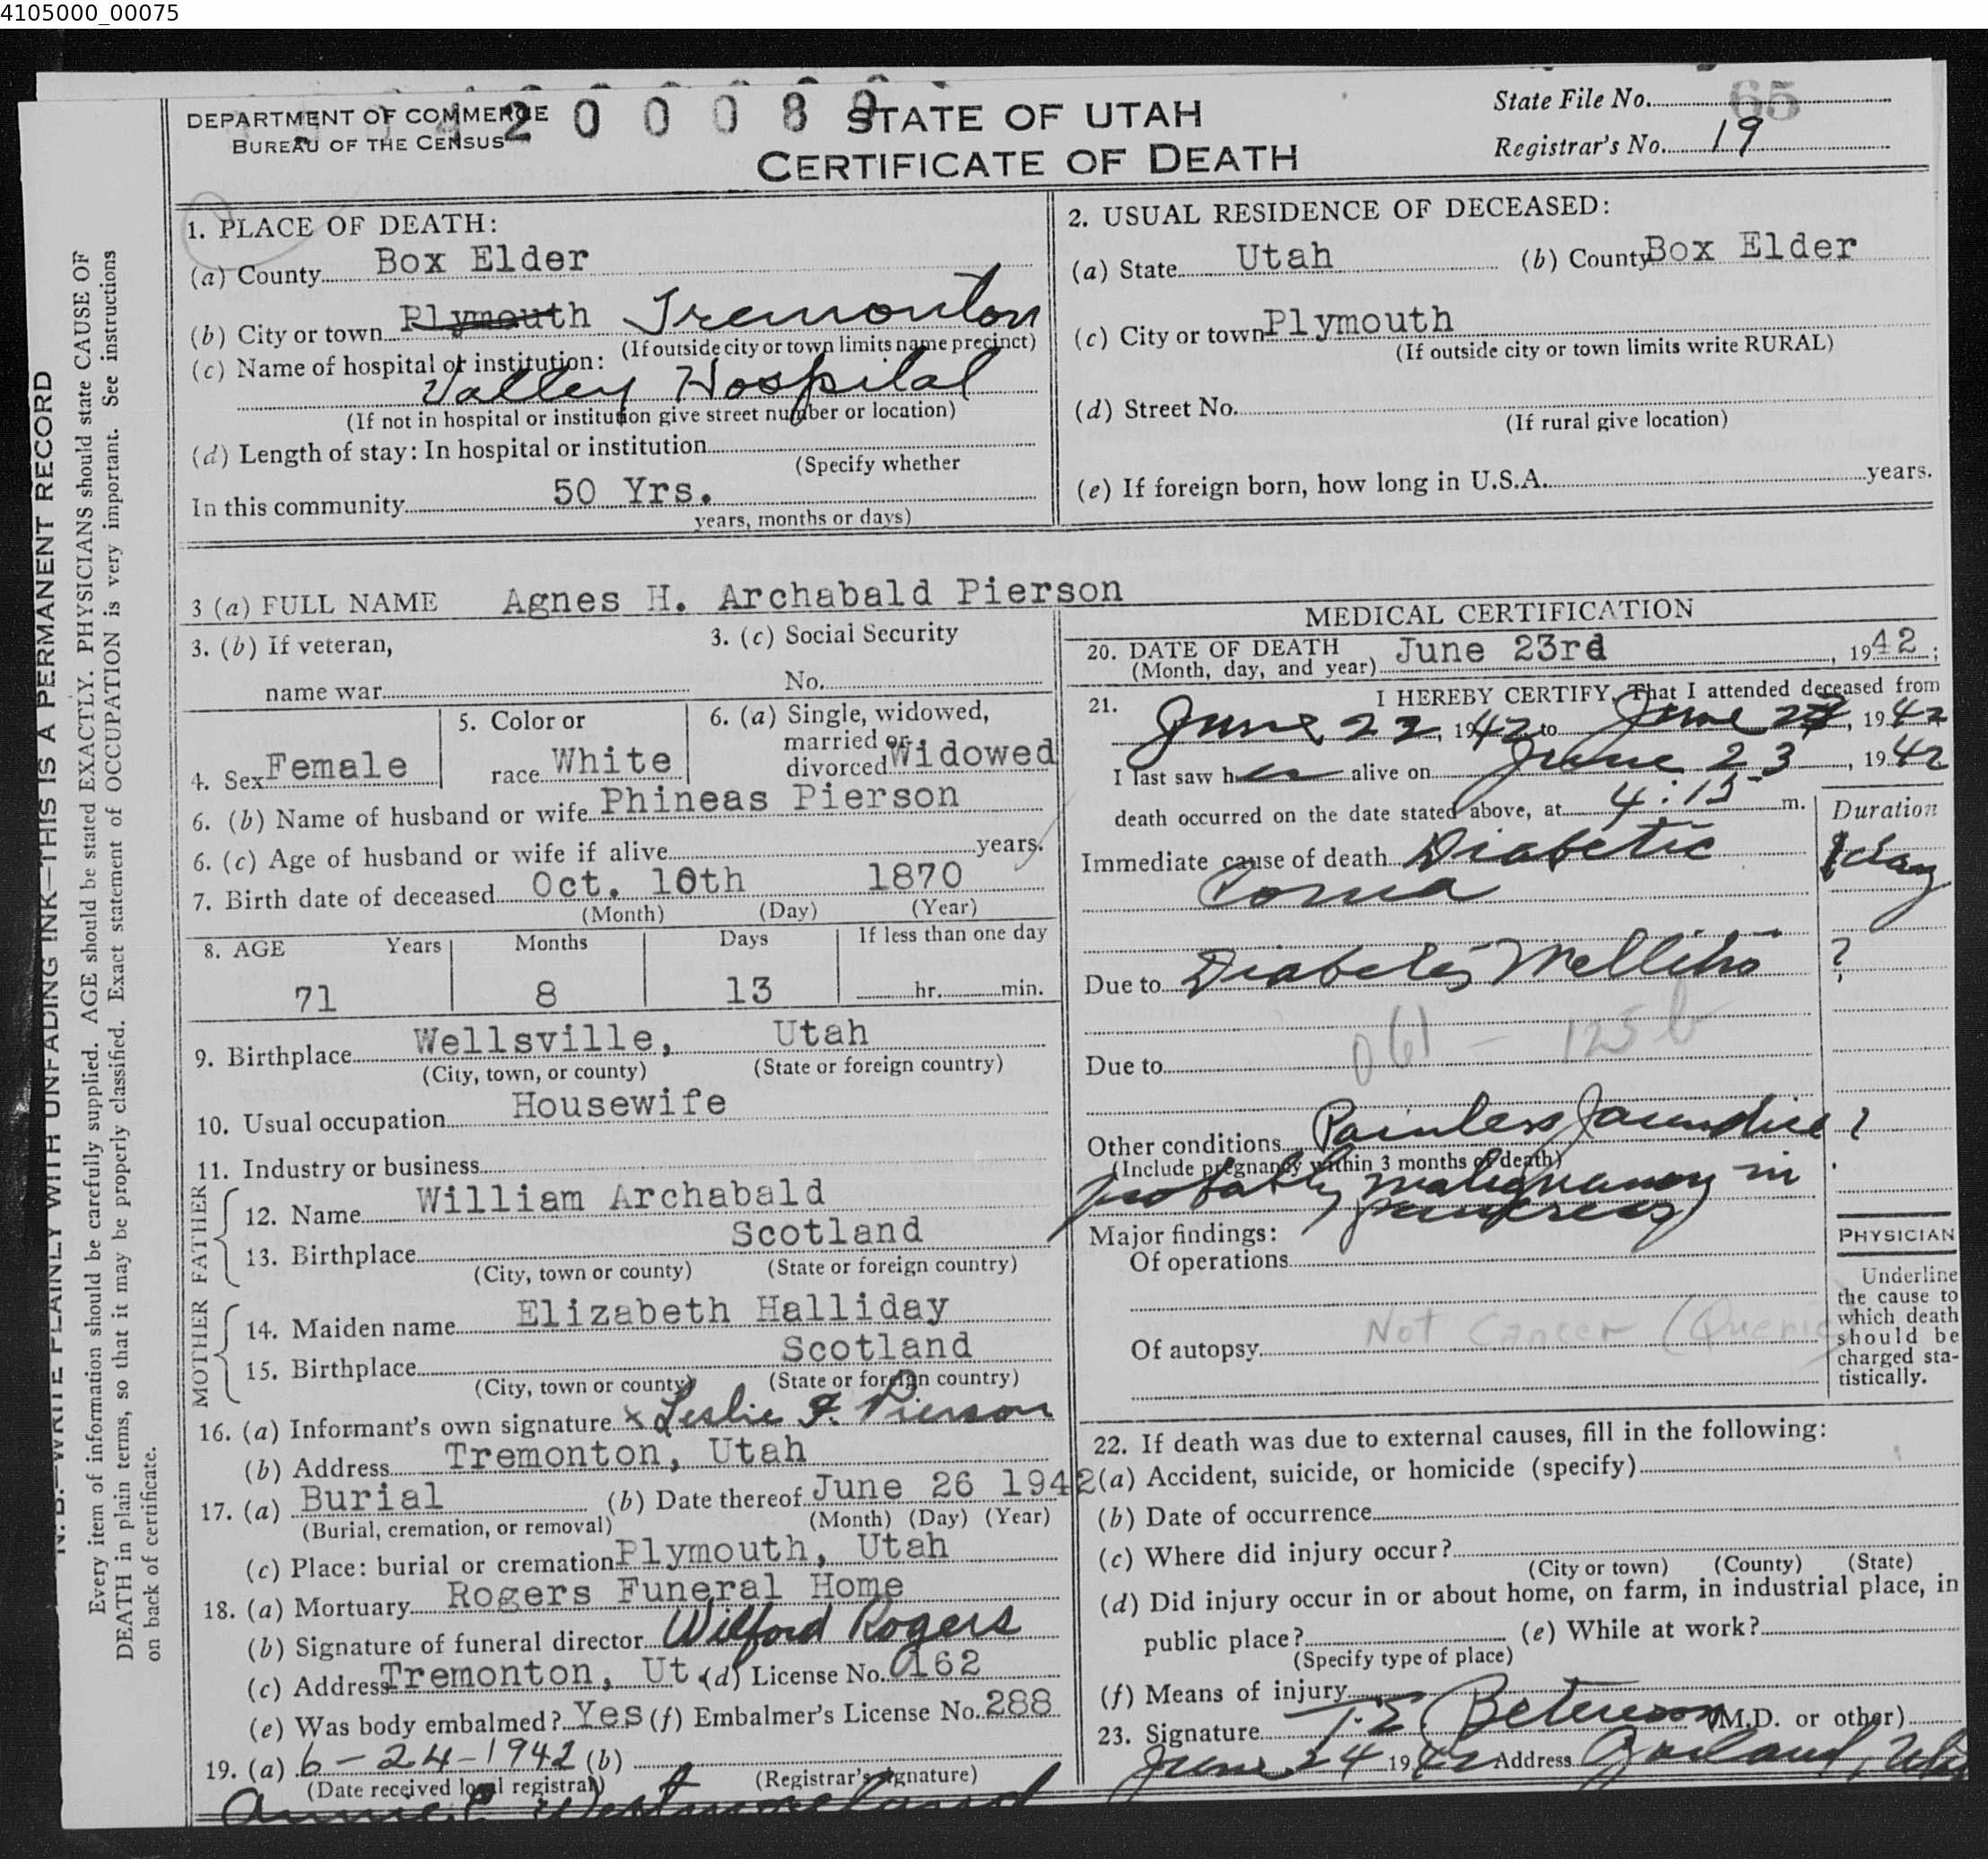 4105000_00075
DEPARTMENT OF COMMERCE
BUREAU OF THE CENSUS
4200089
STATE OF UTAH
CERTIFICATE OF DEATH
State File No. 65
Registrar's No. 19
N. B.—WRITE PLAINLY WITH UNFADING INK—THIS IS A PERMANENT RECORD
Every item of information should be carefully supplied. AGE should be stated EXACTLY. PHYSICIANS should state CAUSE OF
DEATH in plain terms, so that it may be properly classified. Exact statement of OCCUPATION is very important. See instructions
on back of certificate.
1. PLACE OF DEATH:
(a) County Box Elder
(b) City or town Plymouth Tremonton
(If outside city or town limits name precinct)
(c) Name of hospital or institution:
Valley Hospital
(If not in hospital or institution give street number or location)
(d) Length of stay: In hospital or institution
(Specify whether
In this community 50 Yrs.
years, months or days)
2. USUAL RESIDENCE OF DECEASED:
(a) State Utah (b) County Box Elder
(c) City or town Plymouth
(If outside city or town limits write RURAL)
(d) Street No.
(If rural give location)
(e) If foreign born, how long in U.S.A. years.
3 (a) FULL NAME Agnes H. Archabald Pierson
3. (b) If veteran,
name war
3. (c) Social Security
No.
4. Sex Female
5. Color or
race White
6. (a) Single, widowed,
married or
divorced Widowed
6. (b) Name of husband or wife Phineas Pierson
6. (c) Age of husband or wife if alive years.
7. Birth date of deceased Oct. 10th 1870
(Month) (Day) (Year)
8. AGE Years Months Days If less than one day
71 8 13 hr. min.
9. Birthplace Wellsville, Utah
(City, town, or county) (State or foreign country)
10. Usual occupation Housewife
11. Industry or business
FATHER
12. Name William Archabald
13. Birthplace Scotland
(City, town or county) (State or foreign country)
MOTHER
14. Maiden name Elizabeth Halliday
15. Birthplace Scotland
(City, town or county) (State or foreign country)
16. (a) Informant's own signature x Leslie F. Pierson
(b) Address Tremonton, Utah
17. (a) Burial (b) Date thereof June 26 1942
(Burial, cremation, or removal) (Month) (Day) (Year)
(c) Place: burial or cremation Plymouth, Utah
18. (a) Mortuary Rogers Funeral Home
(b) Signature of funeral director Wilford Rogers
(c) Address Tremonton, Ut. (d) License No. 0162
(e) Was body embalmed? Yes (f) Embalmer's License No. 288
19. (a) 6-24-1942 (b)
(Date received local registrar) (Registrar's signature)
Westmoreland
MEDICAL CERTIFICATION
20. DATE OF DEATH
(Month, day, and year) June 23rd, 1942;
21. I HEREBY CERTIFY, That I attended deceased from
June 22, 1942 to June, 1942
I last saw her alive on June 23, 1942
death occurred on the date stated above, at 4:15 m.
Duration
Immediate cause of death Diabetic 1 day
Coma
Due to Diabetes Mellitus ?
061 - 125b
Due to
Other conditions Painless Jaundice ?
(Include pregnancy within 3 months of death)
probably malignancy in
pancreas
Major findings:
Of operations
Of autopsy Not Cancer (Queried)
PHYSICIAN
Underline
the cause to
which death
should be
charged sta-
tistically.
22. If death was due to external causes, fill in the following:
(a) Accident, suicide, or homicide (specify)
(b) Date of occurrence
(c) Where did injury occur?
(City or town) (County) (State)
(d) Did injury occur in or about home, on farm, in industrial place, in
public place? (e) While at work?
(Specify type of place)
(f) Means of injury
23. Signature T. E. Beterson (M.D. or other)
June 24 1942 Address Garland, Utah